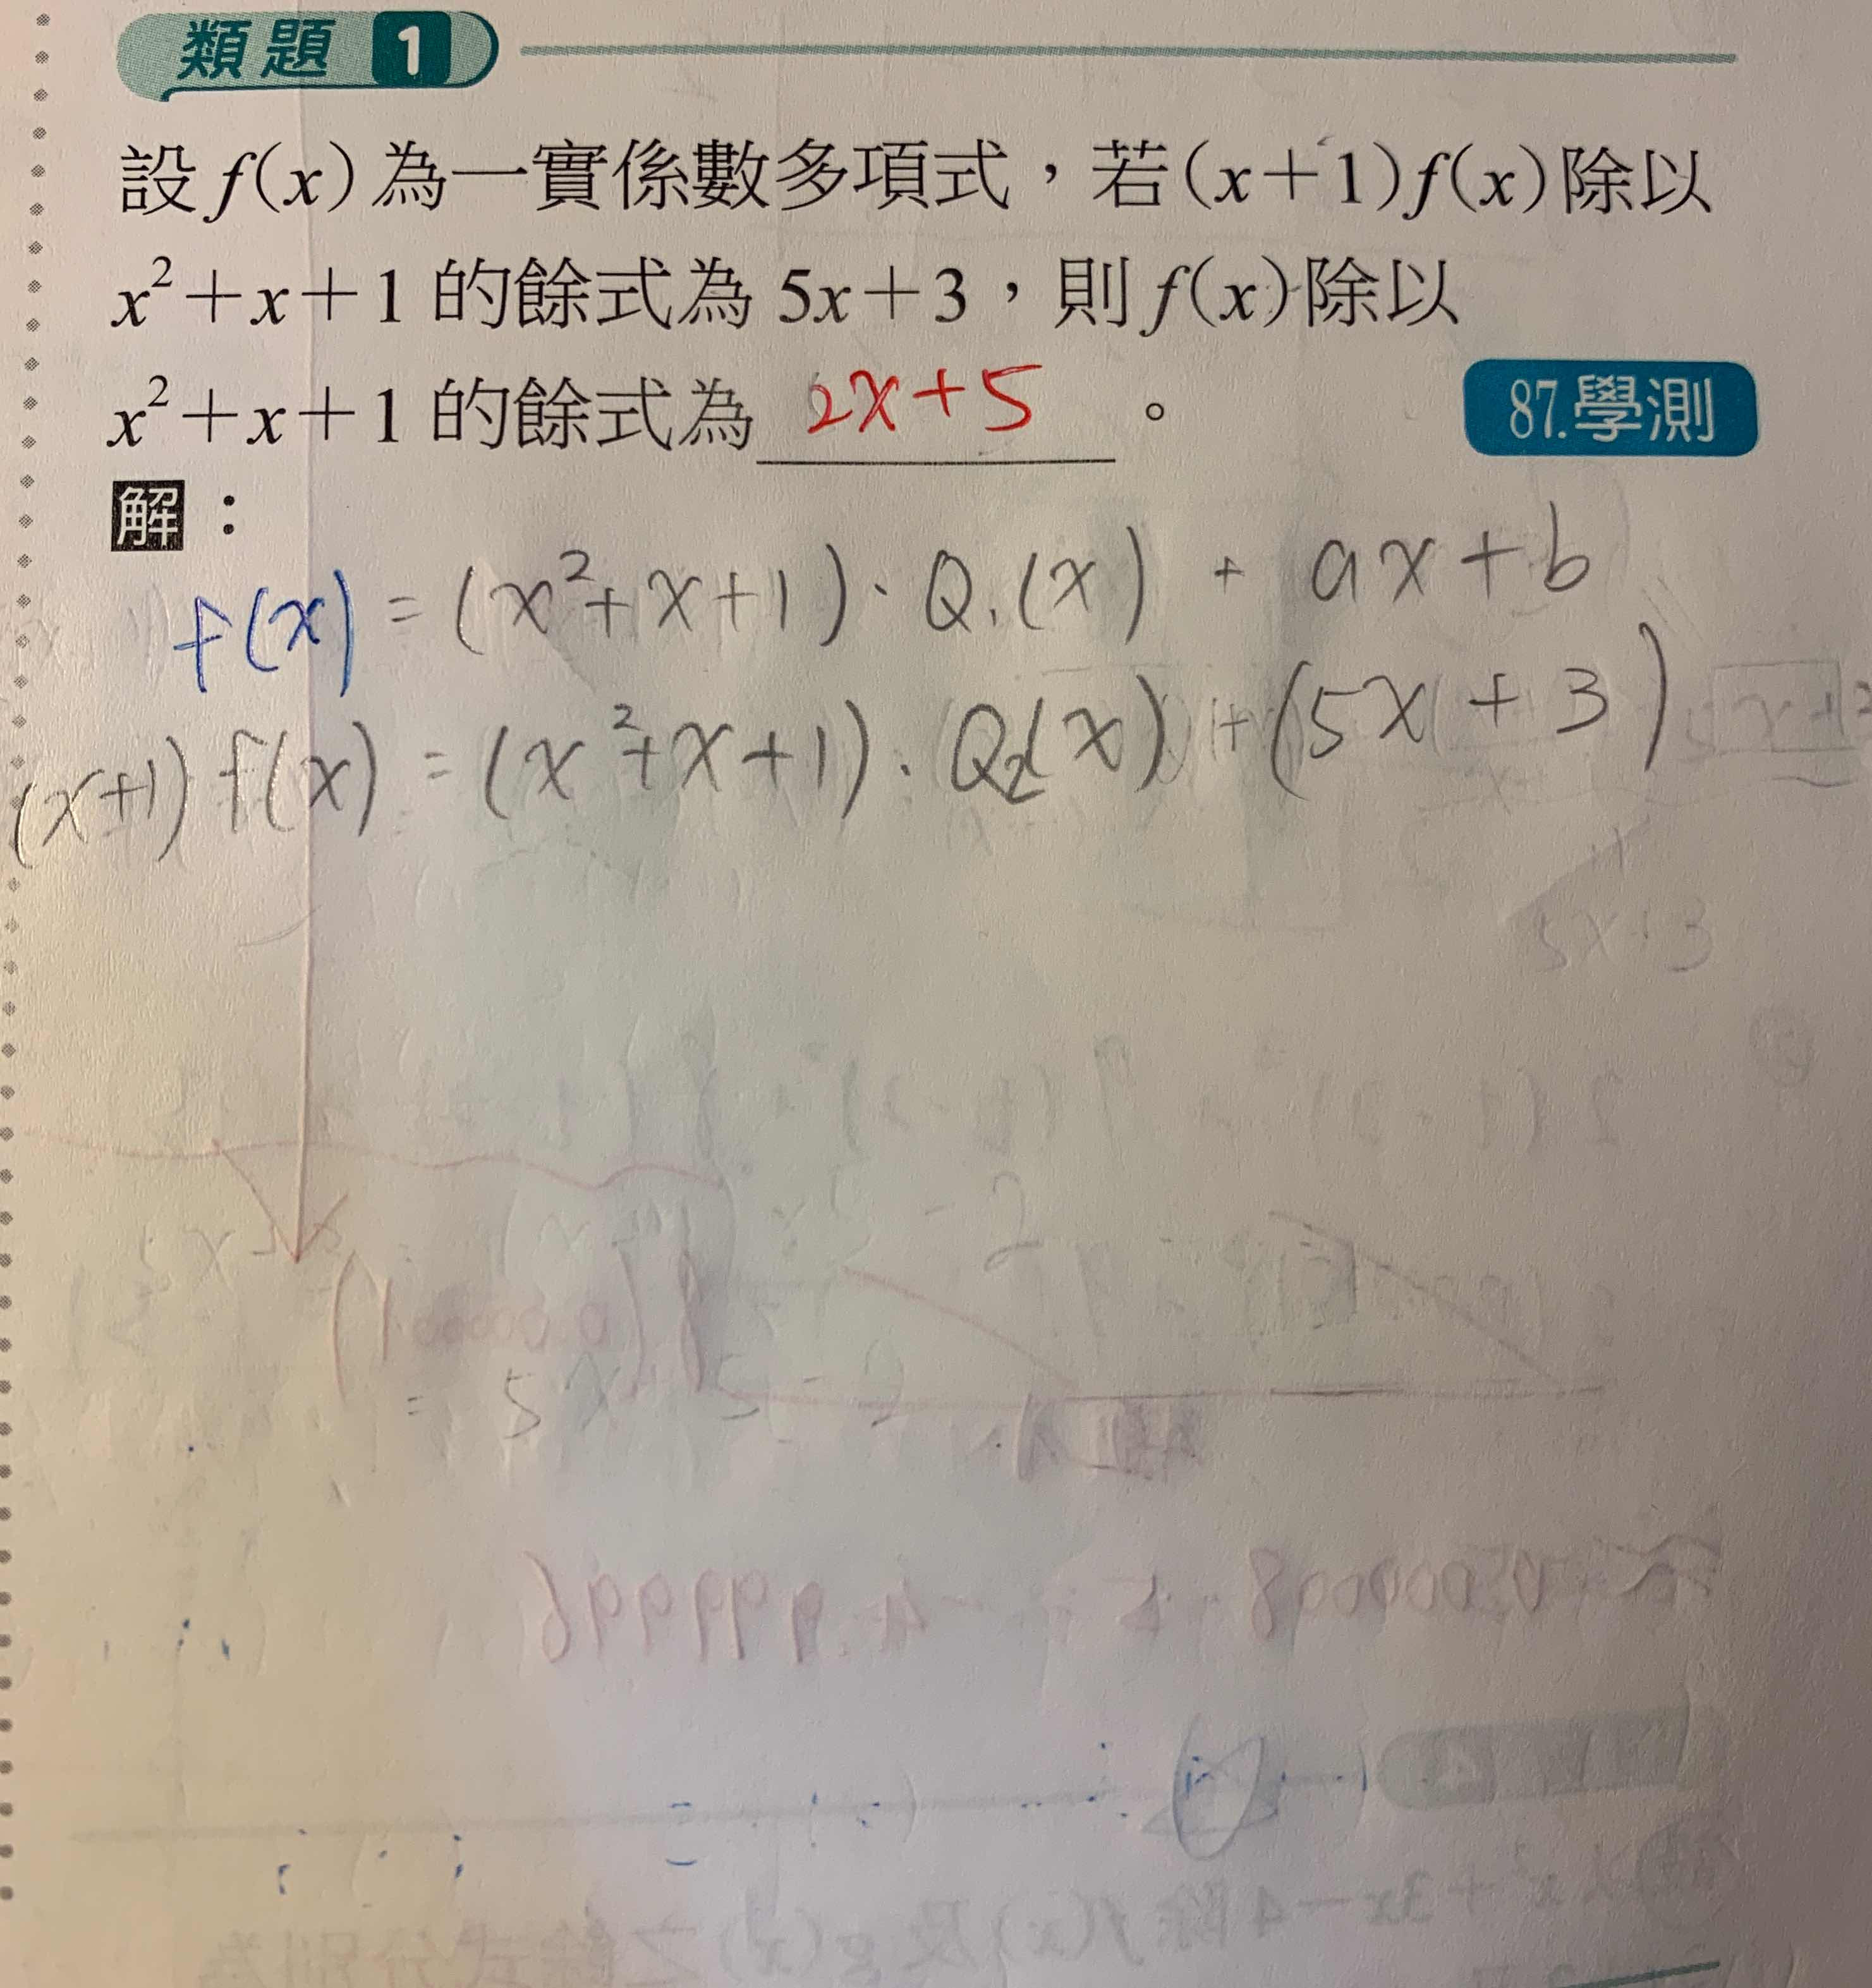 類題 1
設 f(x) 為一實係數多項式，若(x+1)f(x)除以
x²+x+1 的餘式為 5x+3，則 f(x)除以
x²+x+1 的餘式為 2x+5 。
87.學測
解：
f(x) = (x²+x+1)·Q₁(x) + ax+b
(x+1) f(x) = (x²+x+1)·Q₂(x) + (5x+3)
5x+3